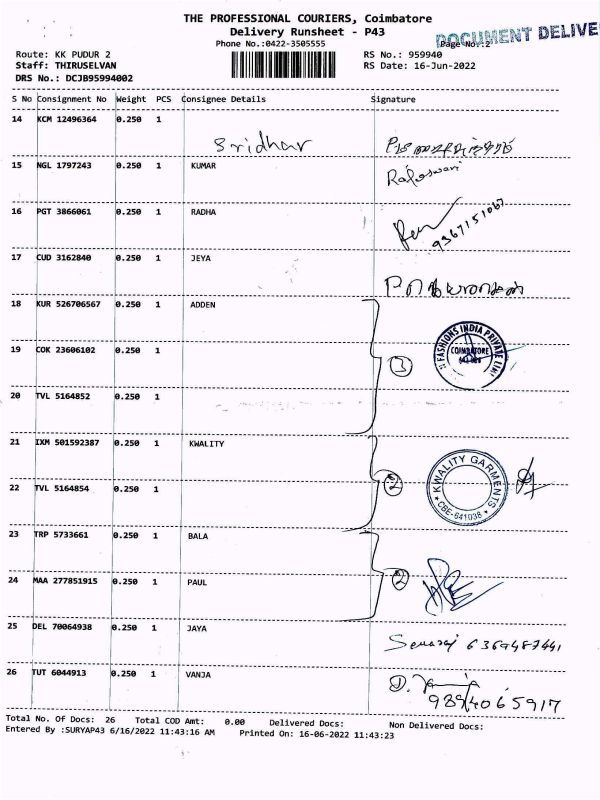 THE PROFESSIONAL COURIERS, Coimbatore
Delivery Runsheet - P43
DOCUMENT DELIVE
Phone No.:0422-3505555
Page No.:2
Route: KK PUDUR 2
RS No.: 959940
Staff: THIRUSELVAN
RS Date: 16-Jun-2022
DRS No.: DCJB95994002
S No Consignment No Weight PCS Consignee Details Signature
14 KCM 12496364 0.250 1
Sridhar
15 NGL 1797243 0.250 1 KUMAR
Rajeswari
16 PGT 3866061 0.250 1 RADHA
9367151067
17 CUD 3162840 0.250 1 JEYA
18 KUR 526706567 0.250 1 ADDEN
FASHIONS INDIA PRIVATE LIMI
COIMBATORE
19 COK 23606102 0.250 1
3
20 TVL 5164852 0.250 1
21 IXM 501592387 0.250 1 KWALITY
KWALITY GARMENTS
CBE-641038
2
22 TVL 5164854 0.250 1
23 TRP 5733661 0.250 1 BALA
2
24 MAA 277851915 0.250 1 PAUL
25 DEL 70064938 0.250 1 JAYA
6369487441
26 TUT 6044913 0.250 1 VANJA
D. Vanja
9894065917
Total No. Of Docs: 26 Total COD Amt: 0.00 Delivered Docs: Non Delivered Docs:
Entered By :SURYAP43 6/16/2022 11:43:16 AM Printed On: 16-06-2022 11:43:23